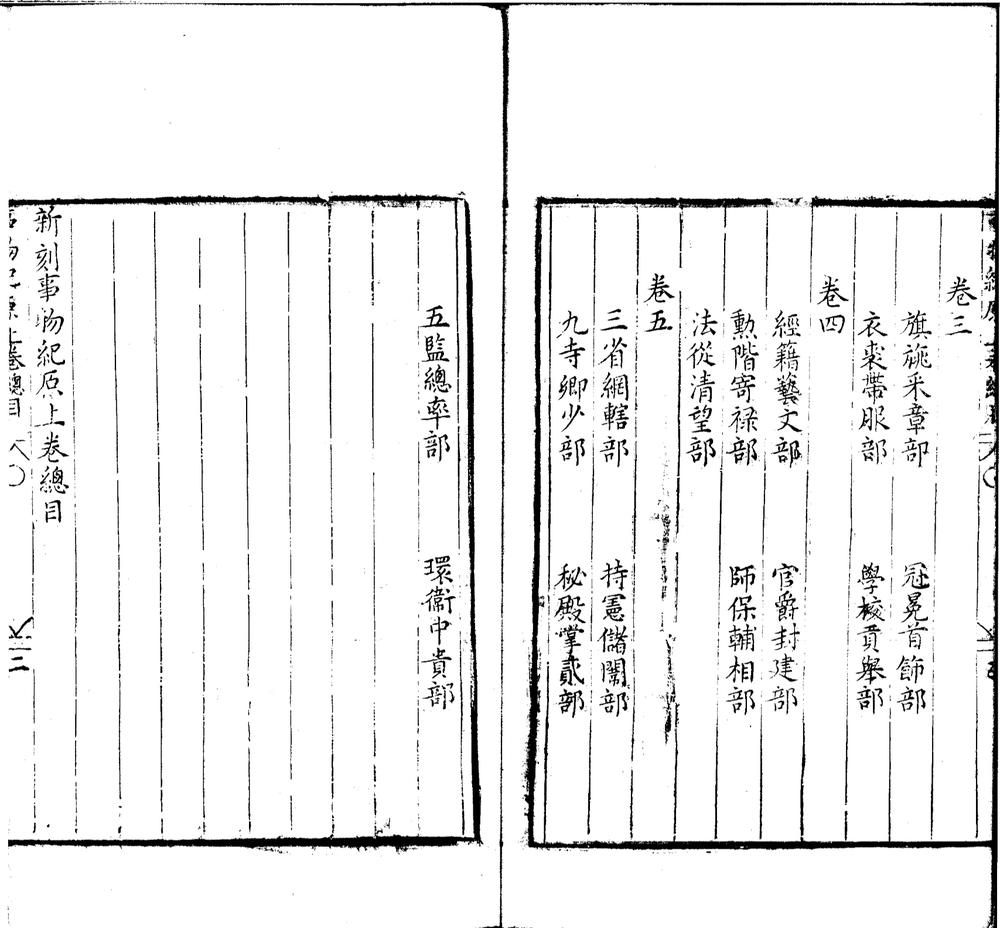 卷三
旗旐采章部 冠冕首飾部
衣裘帶服部 學校貢舉部
卷四
經籍藝文部 官爵封建部
勲階寄禄部 師保輔相部
法從清望部
卷五
三省綱轄部 持憲儲闈部
九寺卿少部 秘殿掌貳部
五監總率部 環衞中貴部
新刻事物紀原上卷總目
事物紀原上卷總目 二